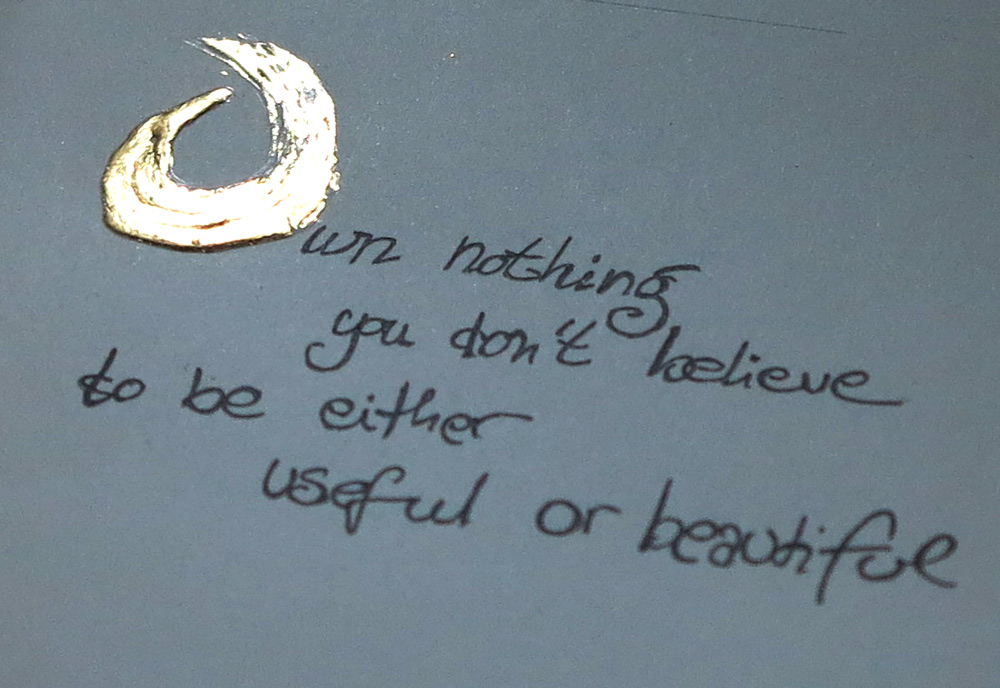 Own nothing
you don't believe
to be either
useful or beautiful